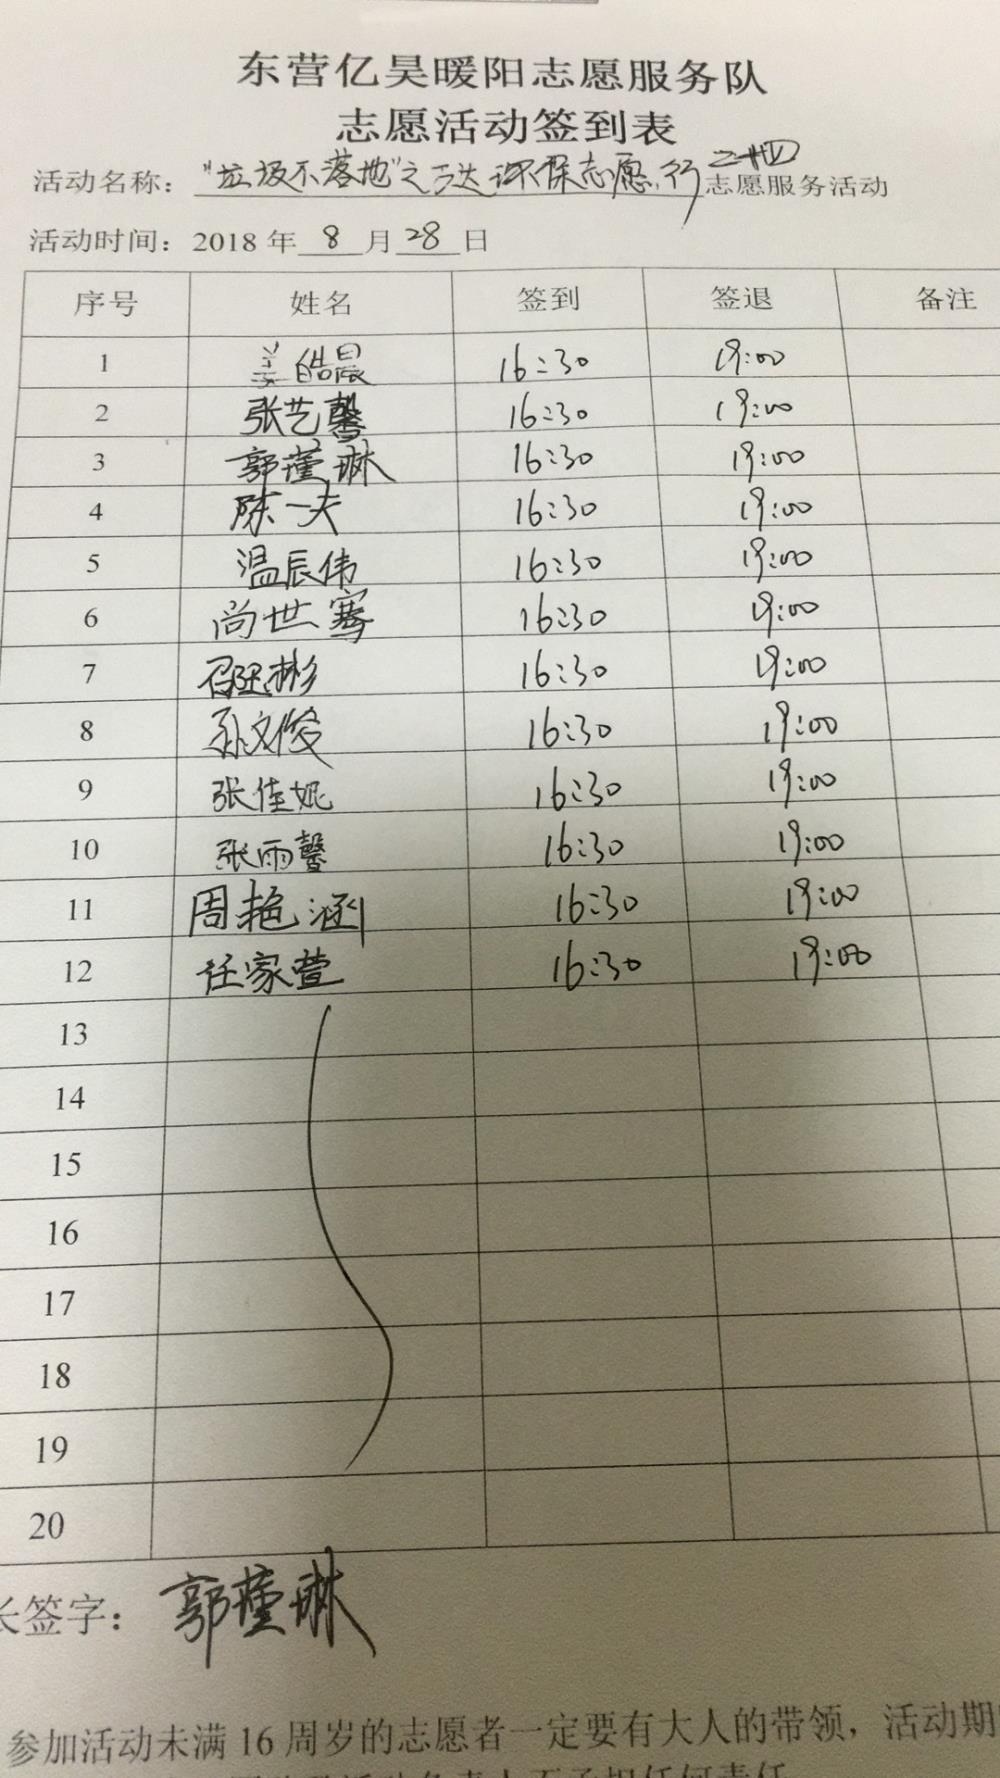 东营亿昊暖阳志愿服务队
志愿活动签到表
活动名称："垃圾不落地"之万达环保志愿行之廿四志愿服务活动
活动时间：2018年8月28日
序号 姓名 签到 签退 备注
1 姜皓晨 16:30 19:00
2 张艺馨 16:30 19:00
3 郭瑾琳 16:30 19:00
4 陈一夫 16:30 19:00
5 温辰伟 16:30 19:00
6 尚世骞 16:30 19:00
7 彬 16:30 19:00
8 孙文俊 16:30 19:00
9 张佳妮 16:30 19:00
10 张雨馨 16:30 19:00
11 周艳涵 16:30 19:00
12 任家萱 16:30 19:00
13
14
15
16
17
18
19
20
长签字：郭瑾琳
参加活动未满16周岁的志愿者一定要有大人的带领，活动期
人不承担任何责任